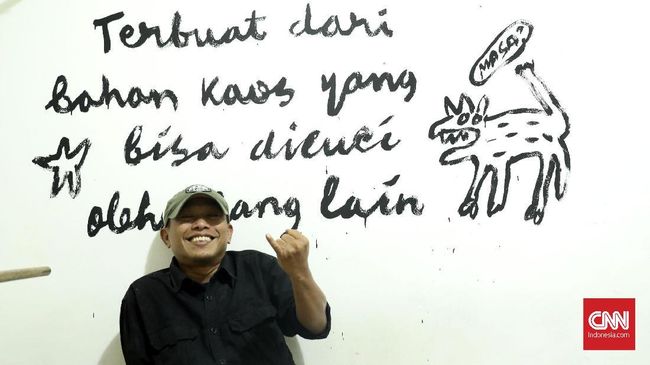 Terbuat dari
bahan kaos yang
MASA?
bisa dicuci
oleh ang lain
CNN
Indonesia.com